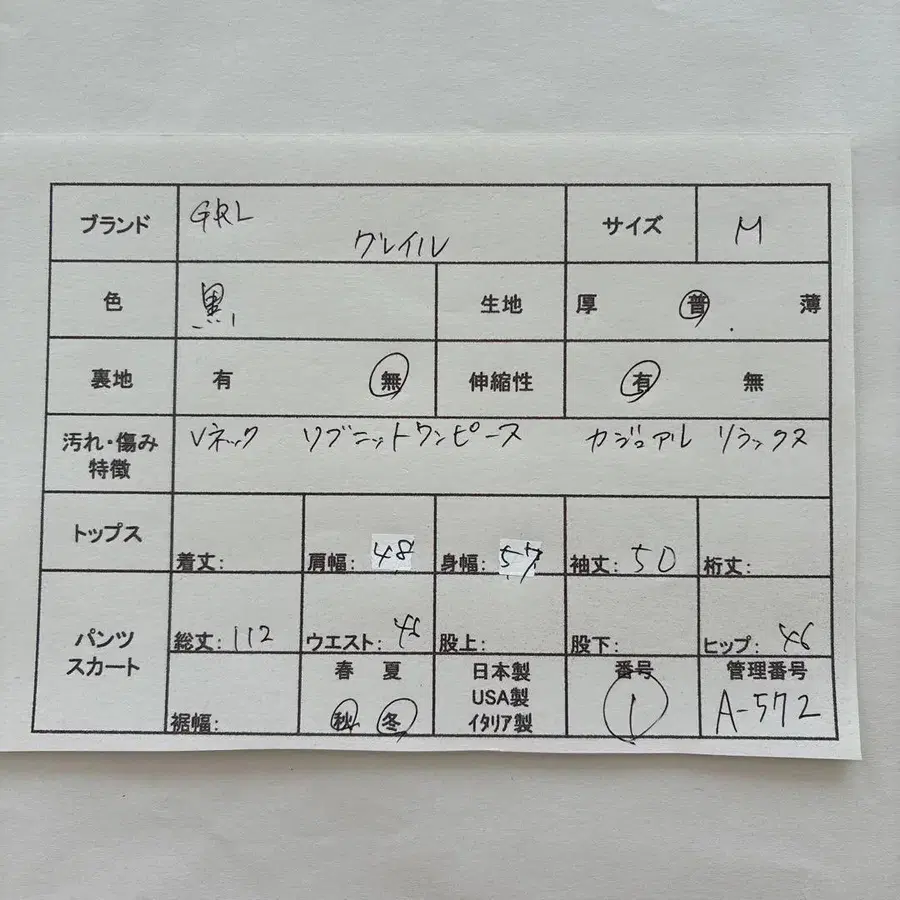 ブランド GRL グレイル サイズ M
色 黒 生地 厚 普 薄
裏地 有 無 伸縮性 有 無
汚れ・傷み 特徴 Vネック リブニットワンピース カジュアル リラックス
トップス 着丈: 肩幅: 48 身幅: 57 袖丈: 50 裄丈:
パンツ スカート 総丈: 112 ウエスト: 股上: 股下: ヒップ: 46
裾幅: 春 夏 秋 冬 日本製 USA製 イタリア製 番号 1 管理番号 A-572